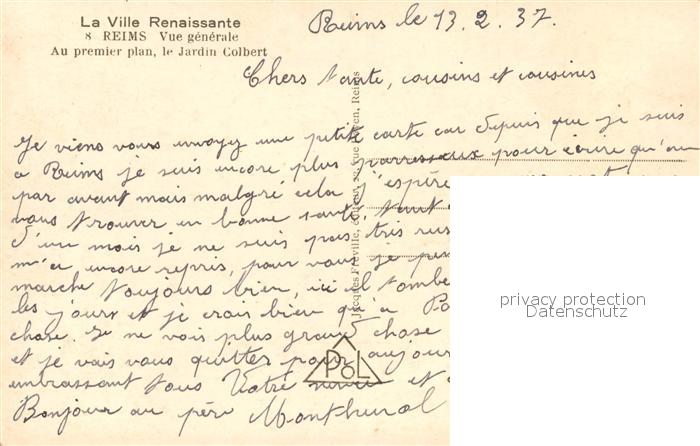 La Ville Renaissante
8 REIMS Vue générale
Au premier plan, le Jardin Colbert
Reims le 13.2.37.
Chers tante, cousins et cousines
Je viens vous envoyez une petite carte car depuis que je suis
a Reims je suis encore plus parresseux pour écrire qu'au
par avant mais malgré cela j'espère
vous trouver en bonne santé, tant
d'un mois je ne suis pas très
m'a encore repris, pour vous je
marche toujours bien, ici il tombe
les jours et je crois bien qu'a
chose. Je ne vois plus grand chose
et je vais vous quitter pour aujour
embrassant tous Votre neveu et
Bonjour au père
Jacques Fréville, éditeur, Reims
POL
privacy protection
Datenschutz